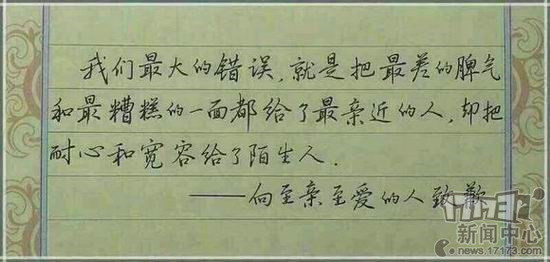 我们最大的错误，就是把最差的脾气
和最糟糕的一面都给了最亲近的人，却把
耐心和宽容给了陌生人．
——向至亲至爱的人致歉
新闻中心
news.17173.com